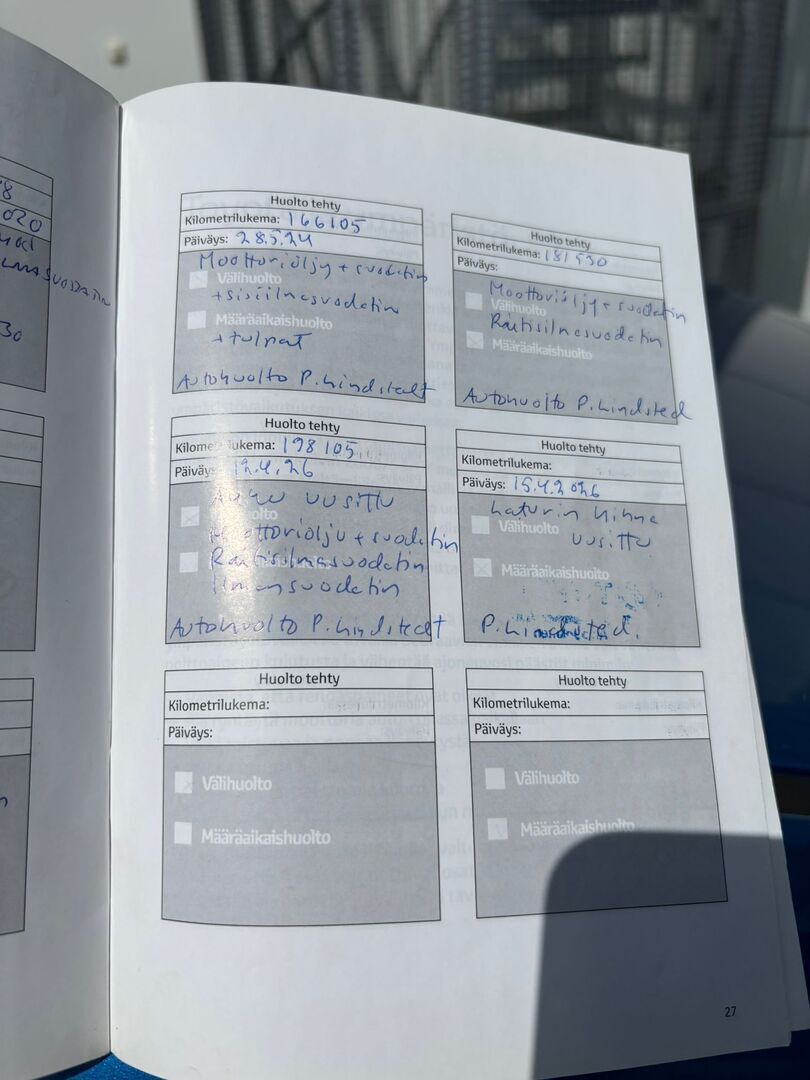 8
020
30
Huolto tehty
Kilometrilukema: 166105
Päiväys: 28.5.24
Moottoriöljy + suodatin
Välihuolto
+ sisäilmasuodatin
Määräaikaishuolto
+ tulpat
Autohuolto P. Lindstedt
Huolto tehty
Kilometrilukema: 181530
Päiväys:
Moottoriöljy + suodatin
Välihuolto
Raitisilmasuodatin
Määräaikaishuolto
Autohuolto P. Lindsted
Huolto tehty
Kilometrilukema: 198105
Päiväys: 12.4.26
Akku uusittu
Moottoriöljy + suodatin
Raitisilmasuodatin
Ilmansuodatin
Autohuolto P. Lindstedt
Huolto tehty
Kilometrilukema:
Päiväys: 15.4.2026
Laturin hihna
Välihuolto
uusittu
Määräaikaishuolto
Huolto tehty
Kilometrilukema:
Päiväys:
Välihuolto
Määräaikaishuolto
Huolto tehty
Kilometrilukema:
Päiväys:
Välihuolto
Määräaikaishuolto
27